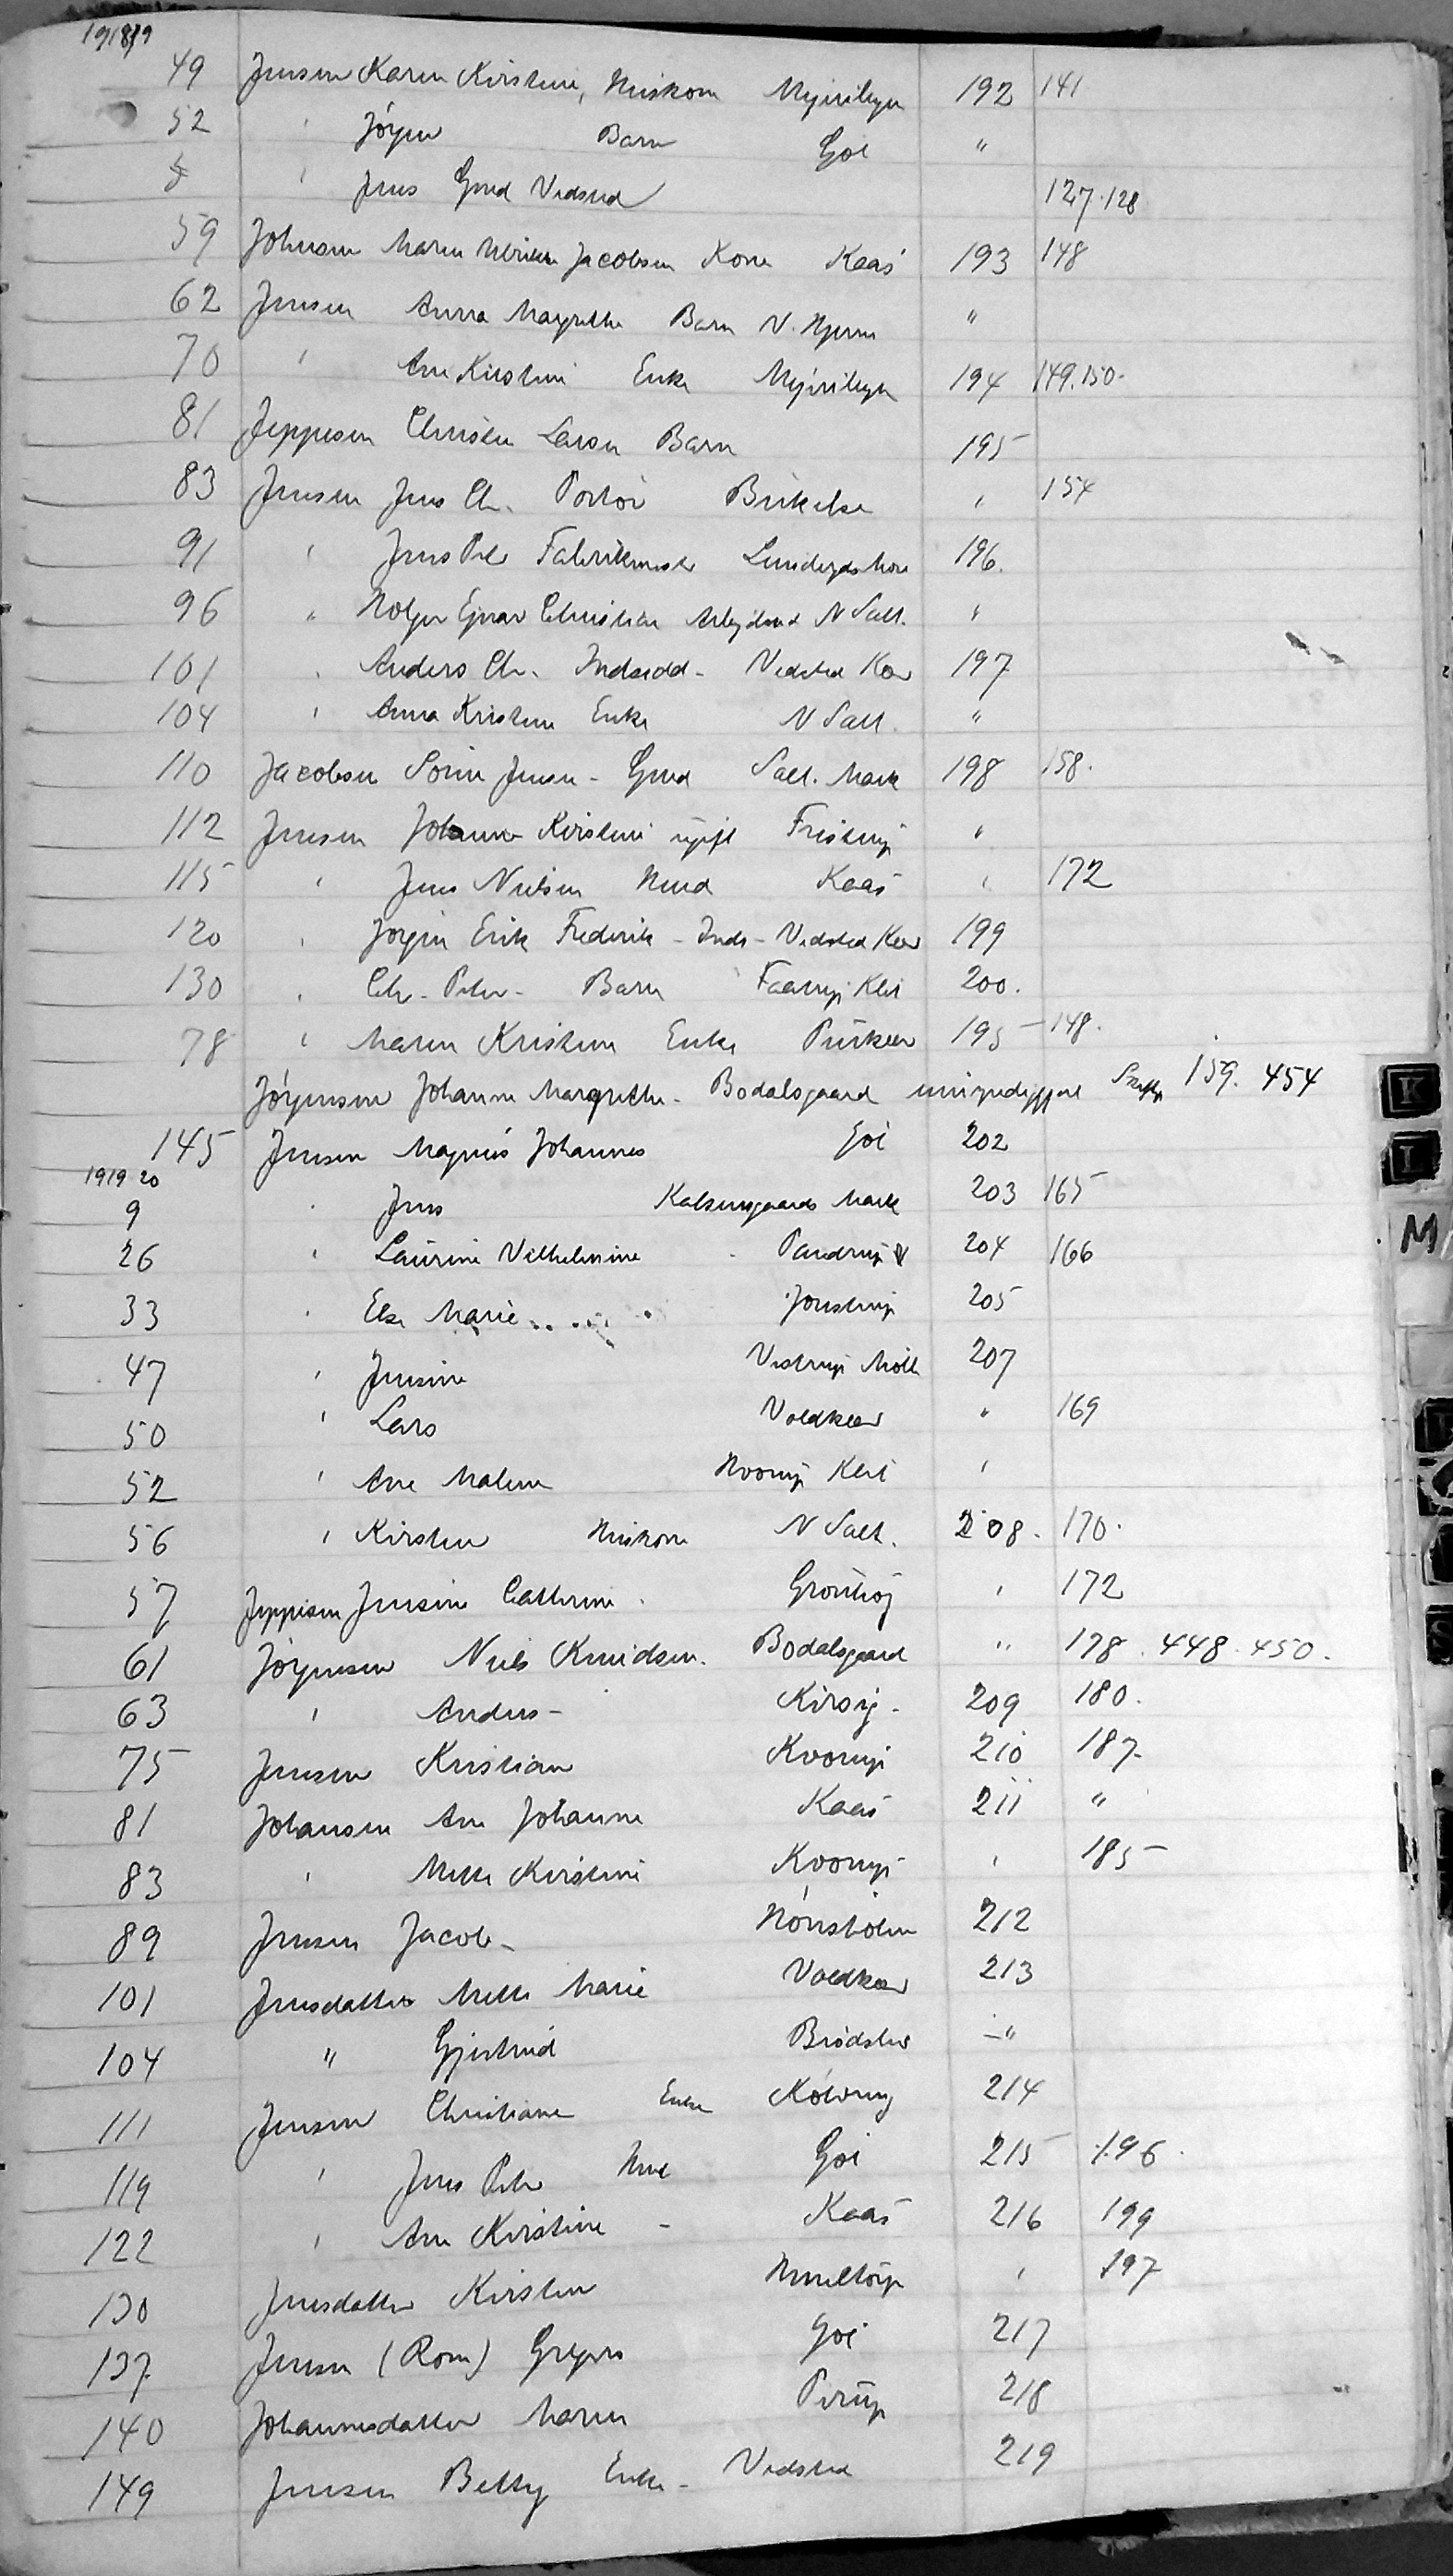 1918/19
49 Jensen Karen Kirstine, Huskone Mejeribyen 192 141
52 " Jörgen Barn Gøl "
" Jens Gmd Vedsted 127.128
59 Johnsen Maren Ulrikke Jacobsen Kone Kaas 193 148
62 Jensen Anna Magrethe Barn N. "
70 " Ane Kirstine Enke Mejeribyen 194 149.150.
81 Jeppesen Christen Larsen Barn 195
83 Jensen Jens Ch. Portör Birkelse " 154
91 " Jens Peter Fabrikmester 196.
96 " Holger Ejnar Christian Arbejdsmd N Salt. "
101 " Anders Ch. Indsidd- Vedsted Kær 197
104 " Anna Kristine Enke N Salt. "
110 Jacobsen Sörin Jensen - Gmd Salt. Mark 198 158.
112 Jensen Johanne Kirstine ugift Fristrup "
115 " Jens Nielsen Hmd Kaas " 172
120 " Jörgen Erik Frederik - Inds - Vedsted Kær 199
130 " Chr. Peter - Barn Faarup Klit 200.
78 " Maren Kristine Enke Purkær 195 - 148.
Jörgensen Johanne Margrethe - Bodalsgaard umyndiggjort 159. 454
145 Jensen Magnus Johannes Gøl 202
1919 20
9 " Jens Kalsensgaards Mark 203 165
26 " Laurine Vilhelmine - Pandrup 204 166
33 " Else Marie Jonstrup 205
47 " Jensine Vestrup Mölle 207
50 " Lars Voldkær " 169
52 " Ane Malene Hvorup Klit "
56 " Kirsten Huskone N Salt. 208. 170.
57 Jeppesen Jensine Cathrine. Grönhöj " 172
61 Jörgensen Niels Knudsen. Bodalsgaard " 178. 448. 450.
63 " Anders - Kirsig. 209 180.
75 Jensen Kristian Kvorup 210 187.
81 Johansen Ane Johanne Kaas 211 "
83 " Mette Kirstine Kvorup " 185
89 Jensen Jacob - Nörsholm 212
101 Jensdatter Mette Marie Voldkær 213
104 " Gjertrud Brödslev - "
111 Jensen Christiane Enke Kölvrup 214
119 " Jens Peter Hmd Gøl 215 196.
122 " Ane Kirstine - Kaas 216 199
130 Jensdatter Kirsten " 197
137. Jensen (Rom) Gregers Gøl 217
140 Johannesdatter Maren Pirup 218
149 Jensen Betty Enke - Vedsted 219
K
L
M